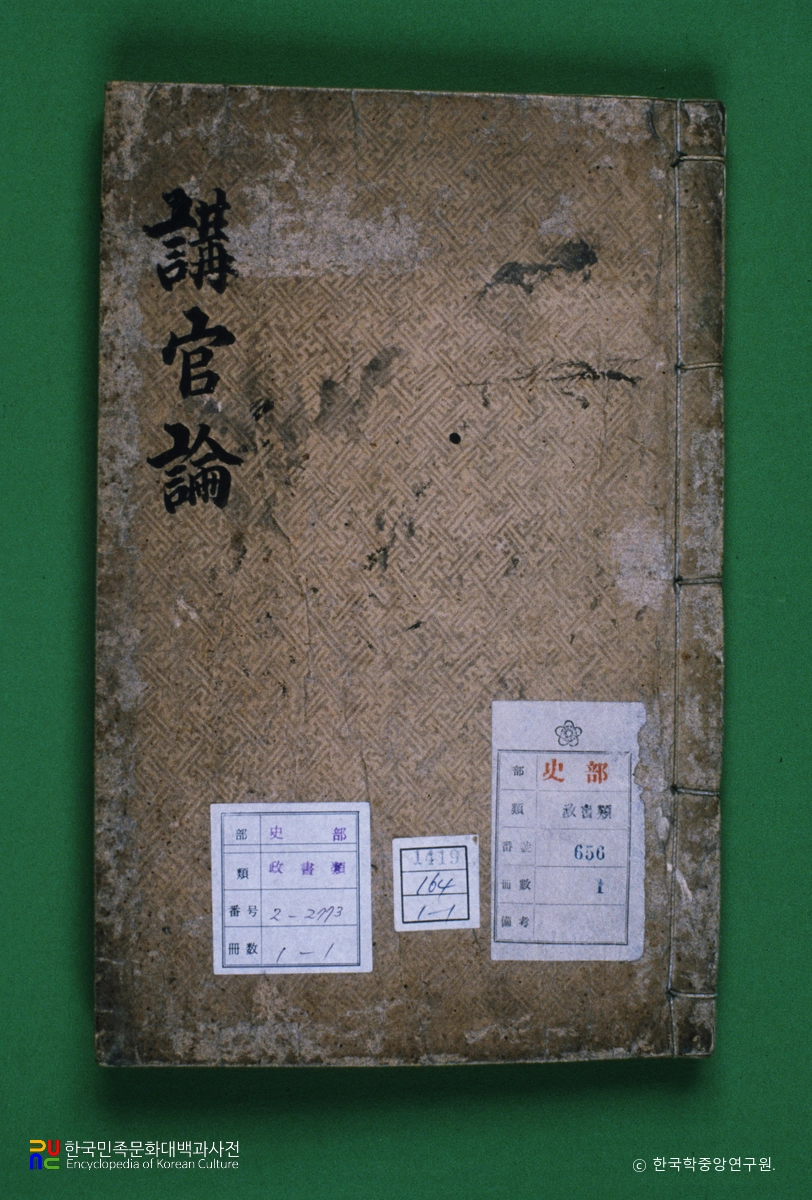 講官論
部 史部
類 政書類
番号 2-2773
冊数 1-1
1419
164
1-1
部 史部
類 政書類
番號 656
冊數 1
備考
한국민족문화대백과사전
Encyclopedia of Korean Culture
© 한국학중앙연구원.